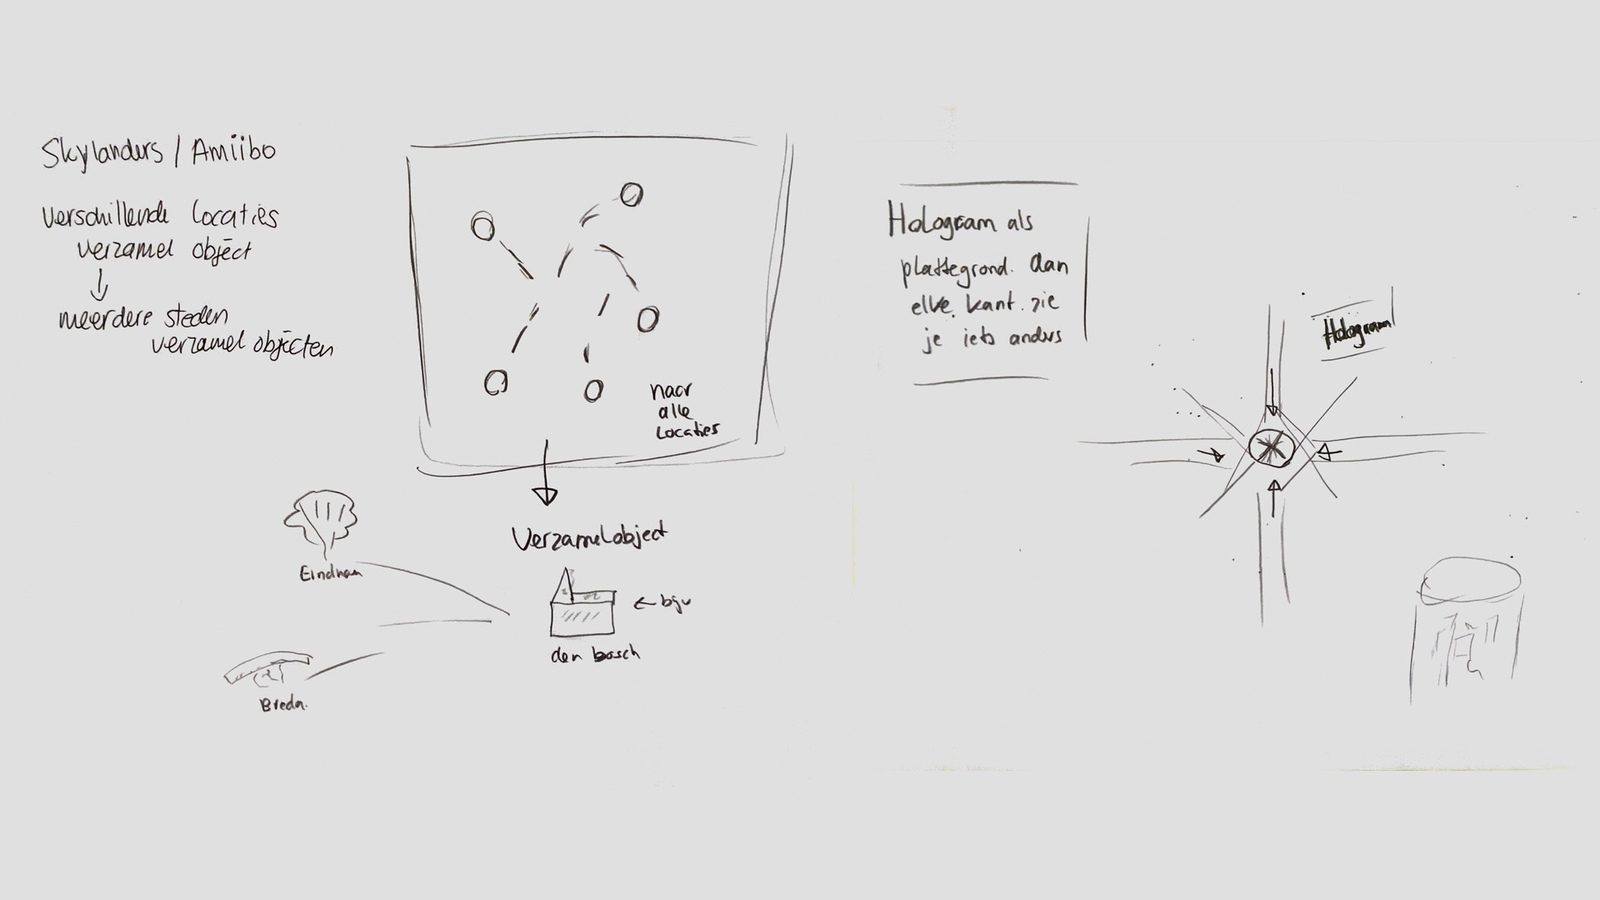 Skylanders / Amiibo
verschillende locaties
verzamel object
meerdere steden
verzamel objecten
naar
alle
locaties
Verzamelobject
Eindhoven
Breda.
← bijv
den bosch
Hologram als
plattegrond. Aan
elke kant zie
je iets anders
Hologram